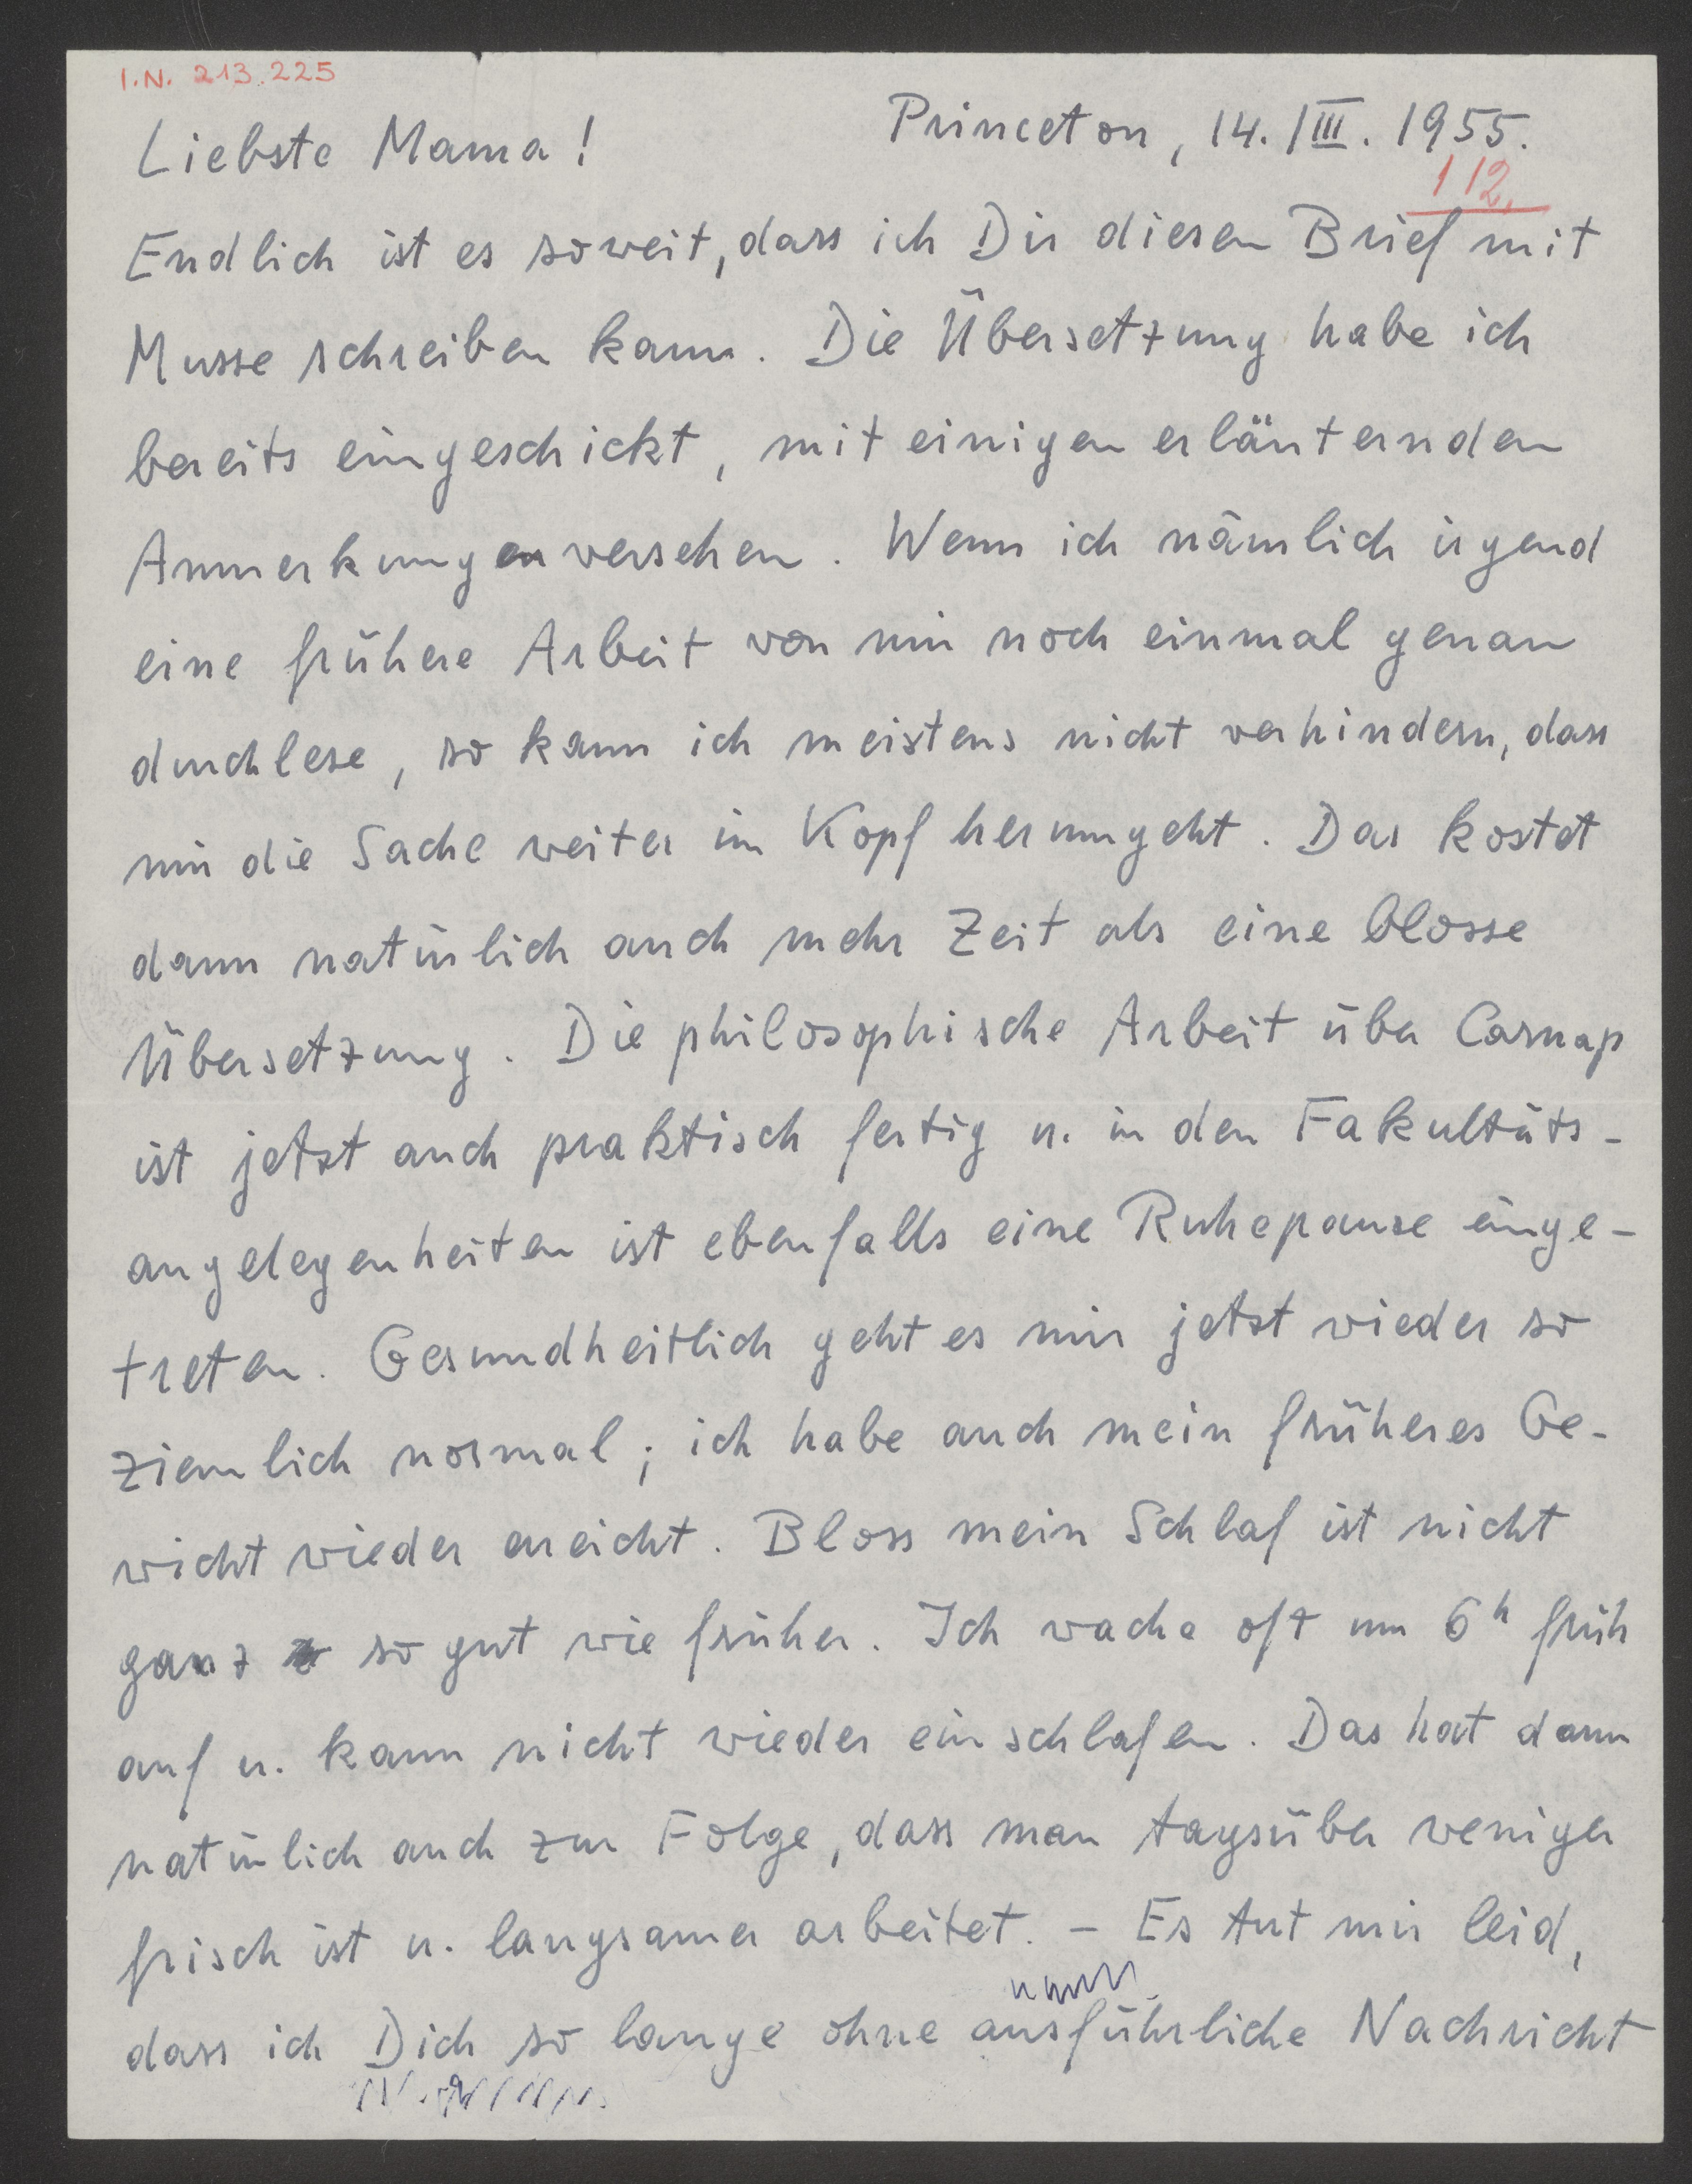 I.N. 213.225
Princeton, 14./III. 1955.
Liebste Mama!
112.
Endlich ist es soweit, dass ich Dir diesen Brief mit
Musse schreiben kann. Die Übersetzung habe ich
bereits eingeschickt, mit einigen erläuternden
Anmerkungen versehen. Wenn ich nämlich irgend
eine frühere Arbeit von mir noch einmal genau
durchlese, so kann ich meistens nicht verhindern, dass
mir die Sache weiter im Kopf herumgeht. Das kostet
dann natürlich auch mehr Zeit als eine blosse
Übersetzung. Die philosophische Arbeit über Carnap
ist jetzt auch praktisch fertig u. in den Fakultäts-
angelegenheiten ist ebenfalls eine Ruhepause einge-
treten. Gesundheitlich geht es mir jetzt wieder so
ziemlich normal; ich habe auch mein früheres Ge-
wicht wieder erreicht. Bloss mein Schlaf ist nicht
ganz so gut wie früher. Ich wache oft um 6h früh
auf u. kann nicht wieder einschlafen. Das hat dann
natürlich auch zur Folge, dass man tagsüber weniger
frisch ist u. langsamer arbeitet. – Es tut mir leid,
dass ich Dich so lange ohne ausführliche Nachricht